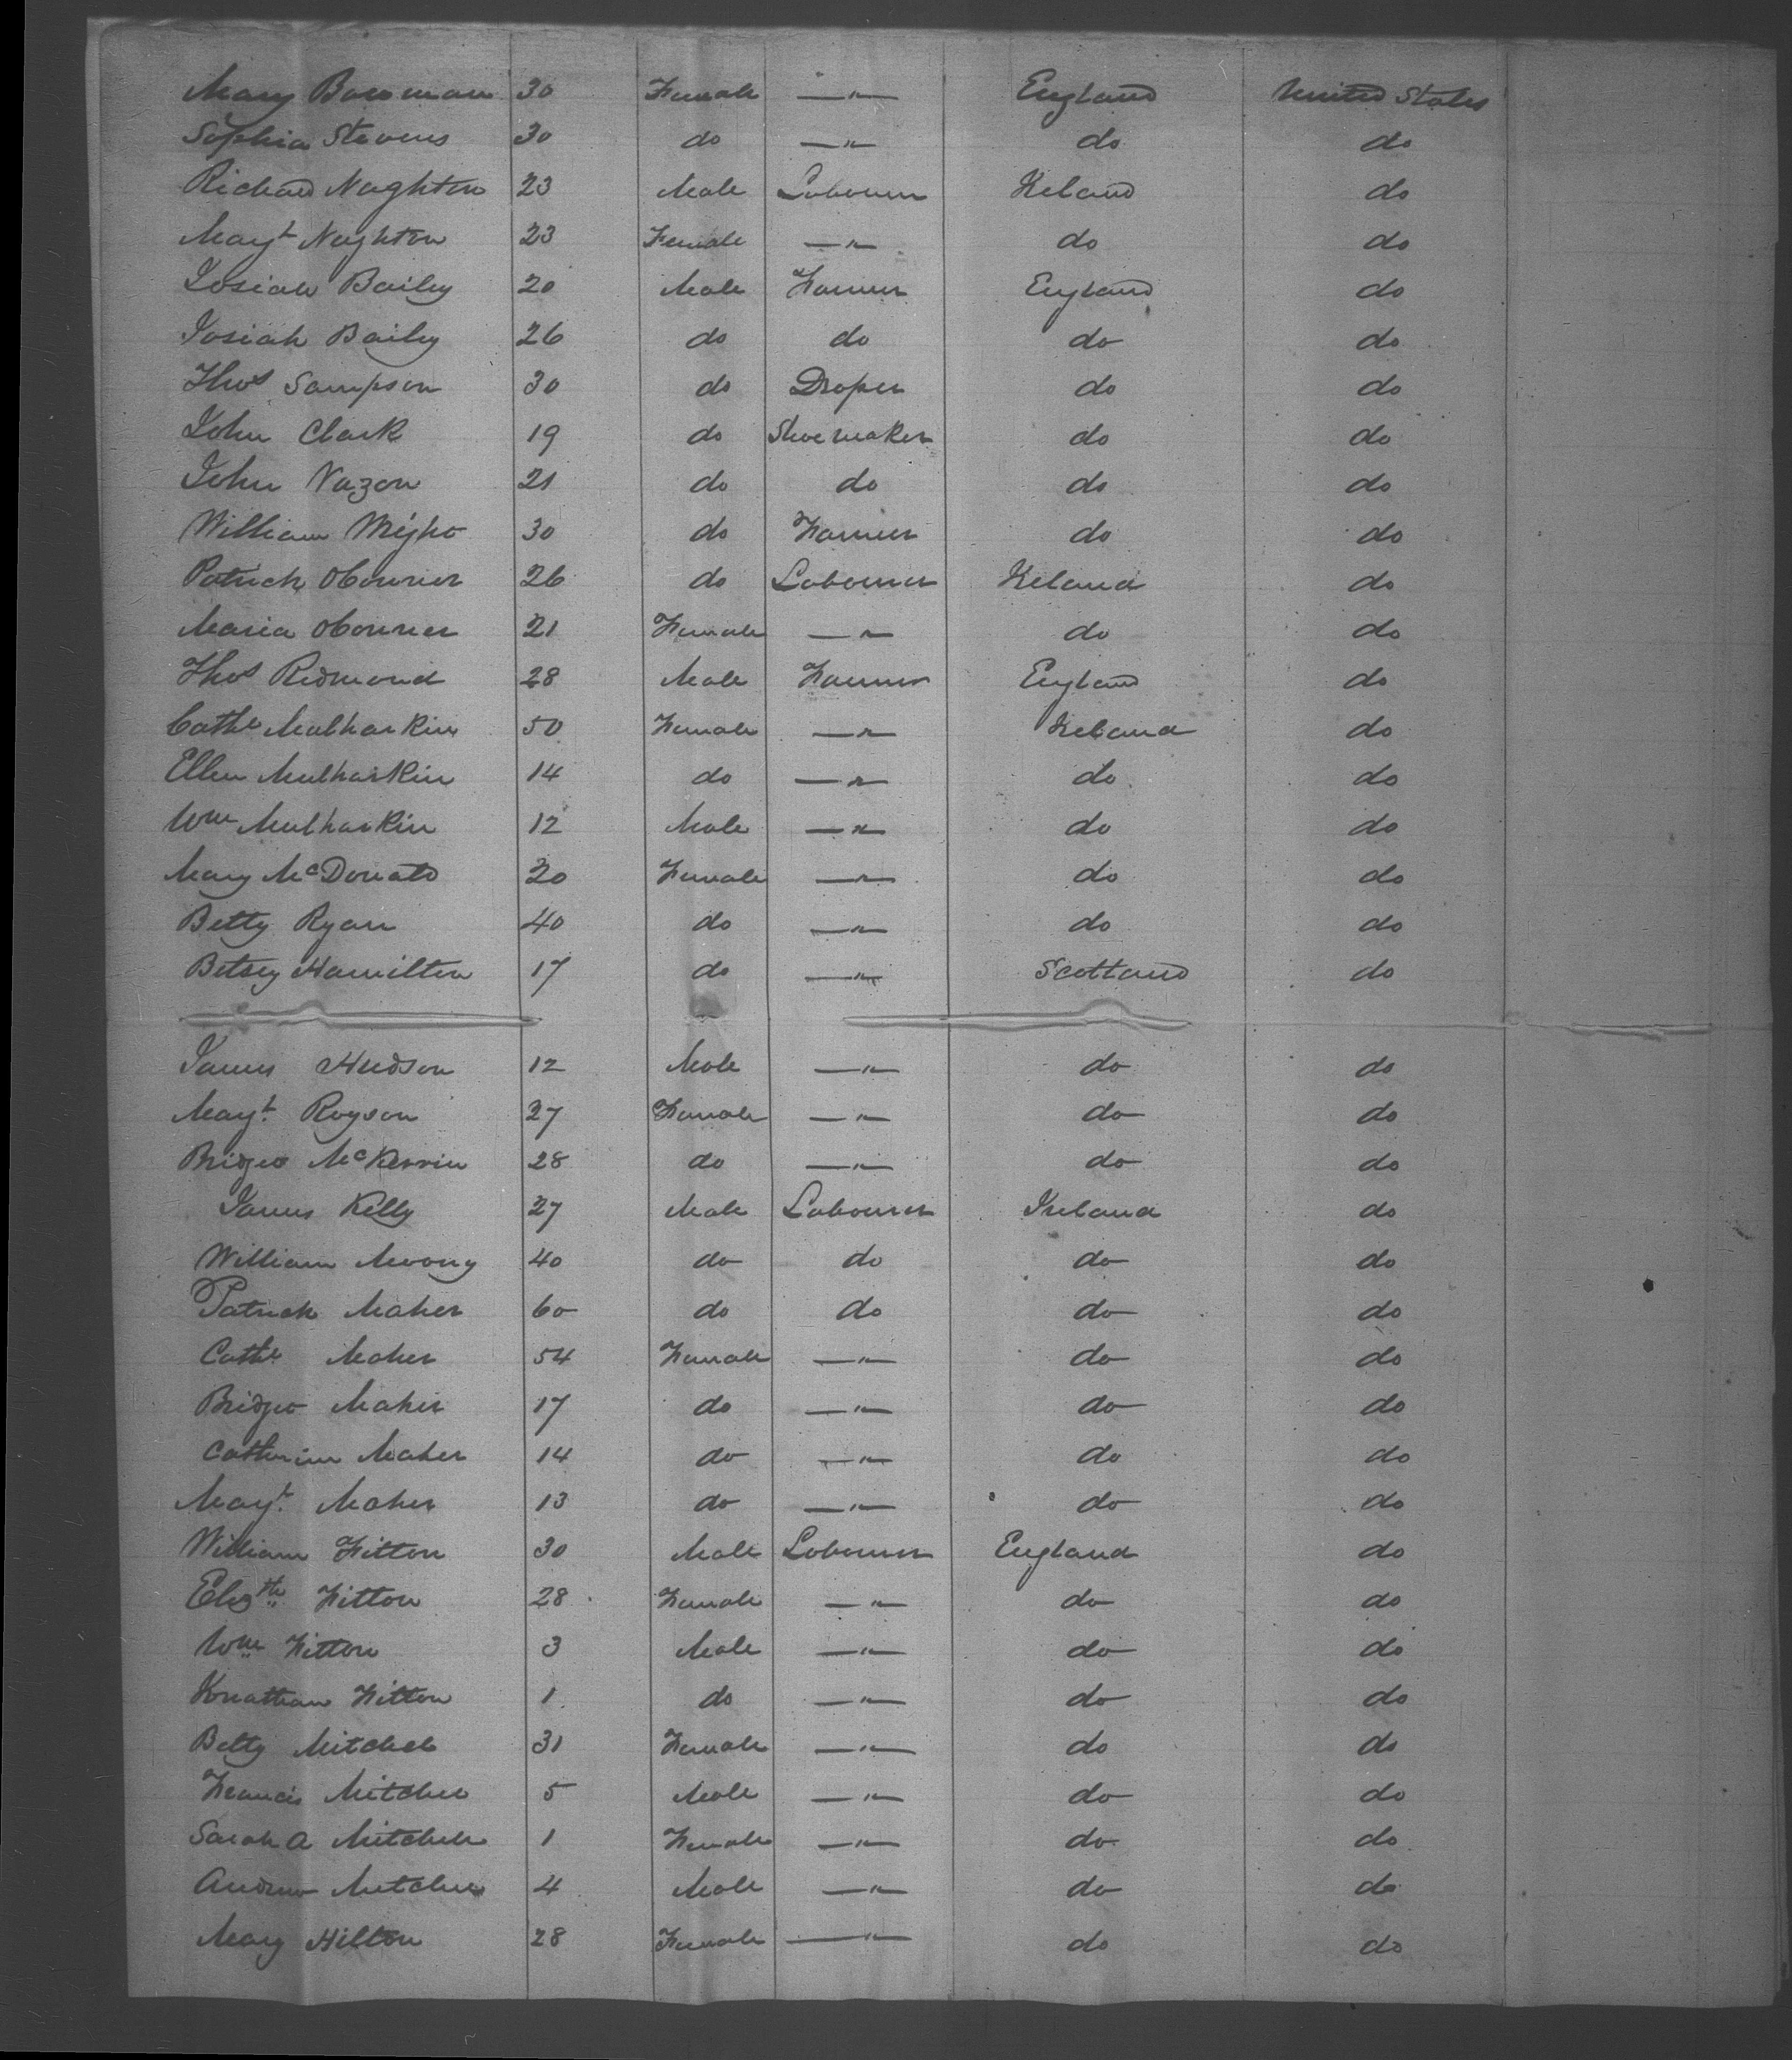 Mary Bowman 30 Female —"— England United States
Sophia Stevens 30 do —"— do do
Richard Naghten 23 Male Labourer Ireland do
Margt Naghton 23 Female —"— do do
Josiah Bailey 20 Male Farmer England do
Josiah Baily 26 do do do do
Thos Sampson 30 do Draper do do
John Clark 19 do Shoemaker do do
John Vazon 21 do do do do
William 30 do Farmer do do
Patrick OConner 26 do Labourer Ireland do
Maria OConner 21 Female —"— do do
Thos Redmond 28 Male Farmer England do
Cathe Mulharkin 50 Female —"— Ireland do
Ellen Mulharkin 14 do —"— do do
Wm Mulharkin 12 Male —"— do do
Mary McDonald 20 Female —"— do do
Betty Ryan 40 do —"— do do
Betsey Hamilton 17 do —"— Scotland do
James Hudson 12 Male —"— do do
Margt. Royson 27 Female —"— do do
Bridget McKervin 28 do —"— do do
James Kelly 27 Male Labourer Ireland do
William 40 do do do do
Patrick Maher 60 do do do do
Cathe Maher 54 Female —"— do do
Bridget Maher 17 do —"— do do
Catherine Maher 14 do —"— do do
Margt. Maher 13 do —"— do do
William Fitton 30 Male Labourer England do
Elizth Fitton 28 Female —"— do do
Wm Fitton 3 Male —"— do do
Jonathan Fitton 1 do —"— do do
Betty Mitchel 31 Female —"— do do
Francis Mitchel 5 Male —"— do do
Sarah A Mitchell 1 Female —"— do do
Andrew Mitchel 4 Male —"— do do
Mary Hilton 28 Female —"— do do